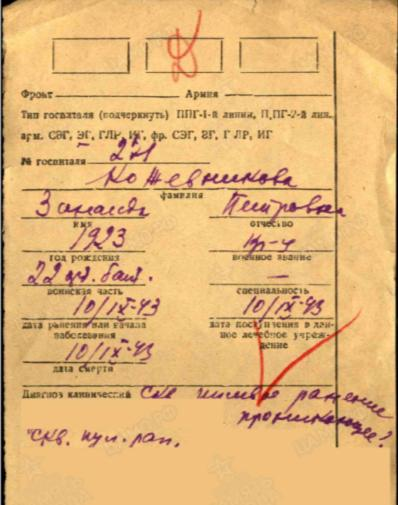 Д
Фронт Армия
Тип госпиталя (подчеркнуть) ППГ-1-й линии, ППГ-2-й лин.
арм. СЭГ, ЭГ, ГЛР, ИГ, фр. СЭГ, ЭГ, ГЛР, ИГ
№ госпиталя 271
Кожевникова
фамилия
Зинаида Петровна
имя отчество
1923 кр-ц
год рождения военное звание
22 —
воинская часть специальность
10/IX-43 10/IX-43
дата ранения или начала заболевания дата поступления в данное лечебное учреждение
10/IX-43
дата смерти
Диагноз клинический ранение
проникающее?
скв. пул. ран.